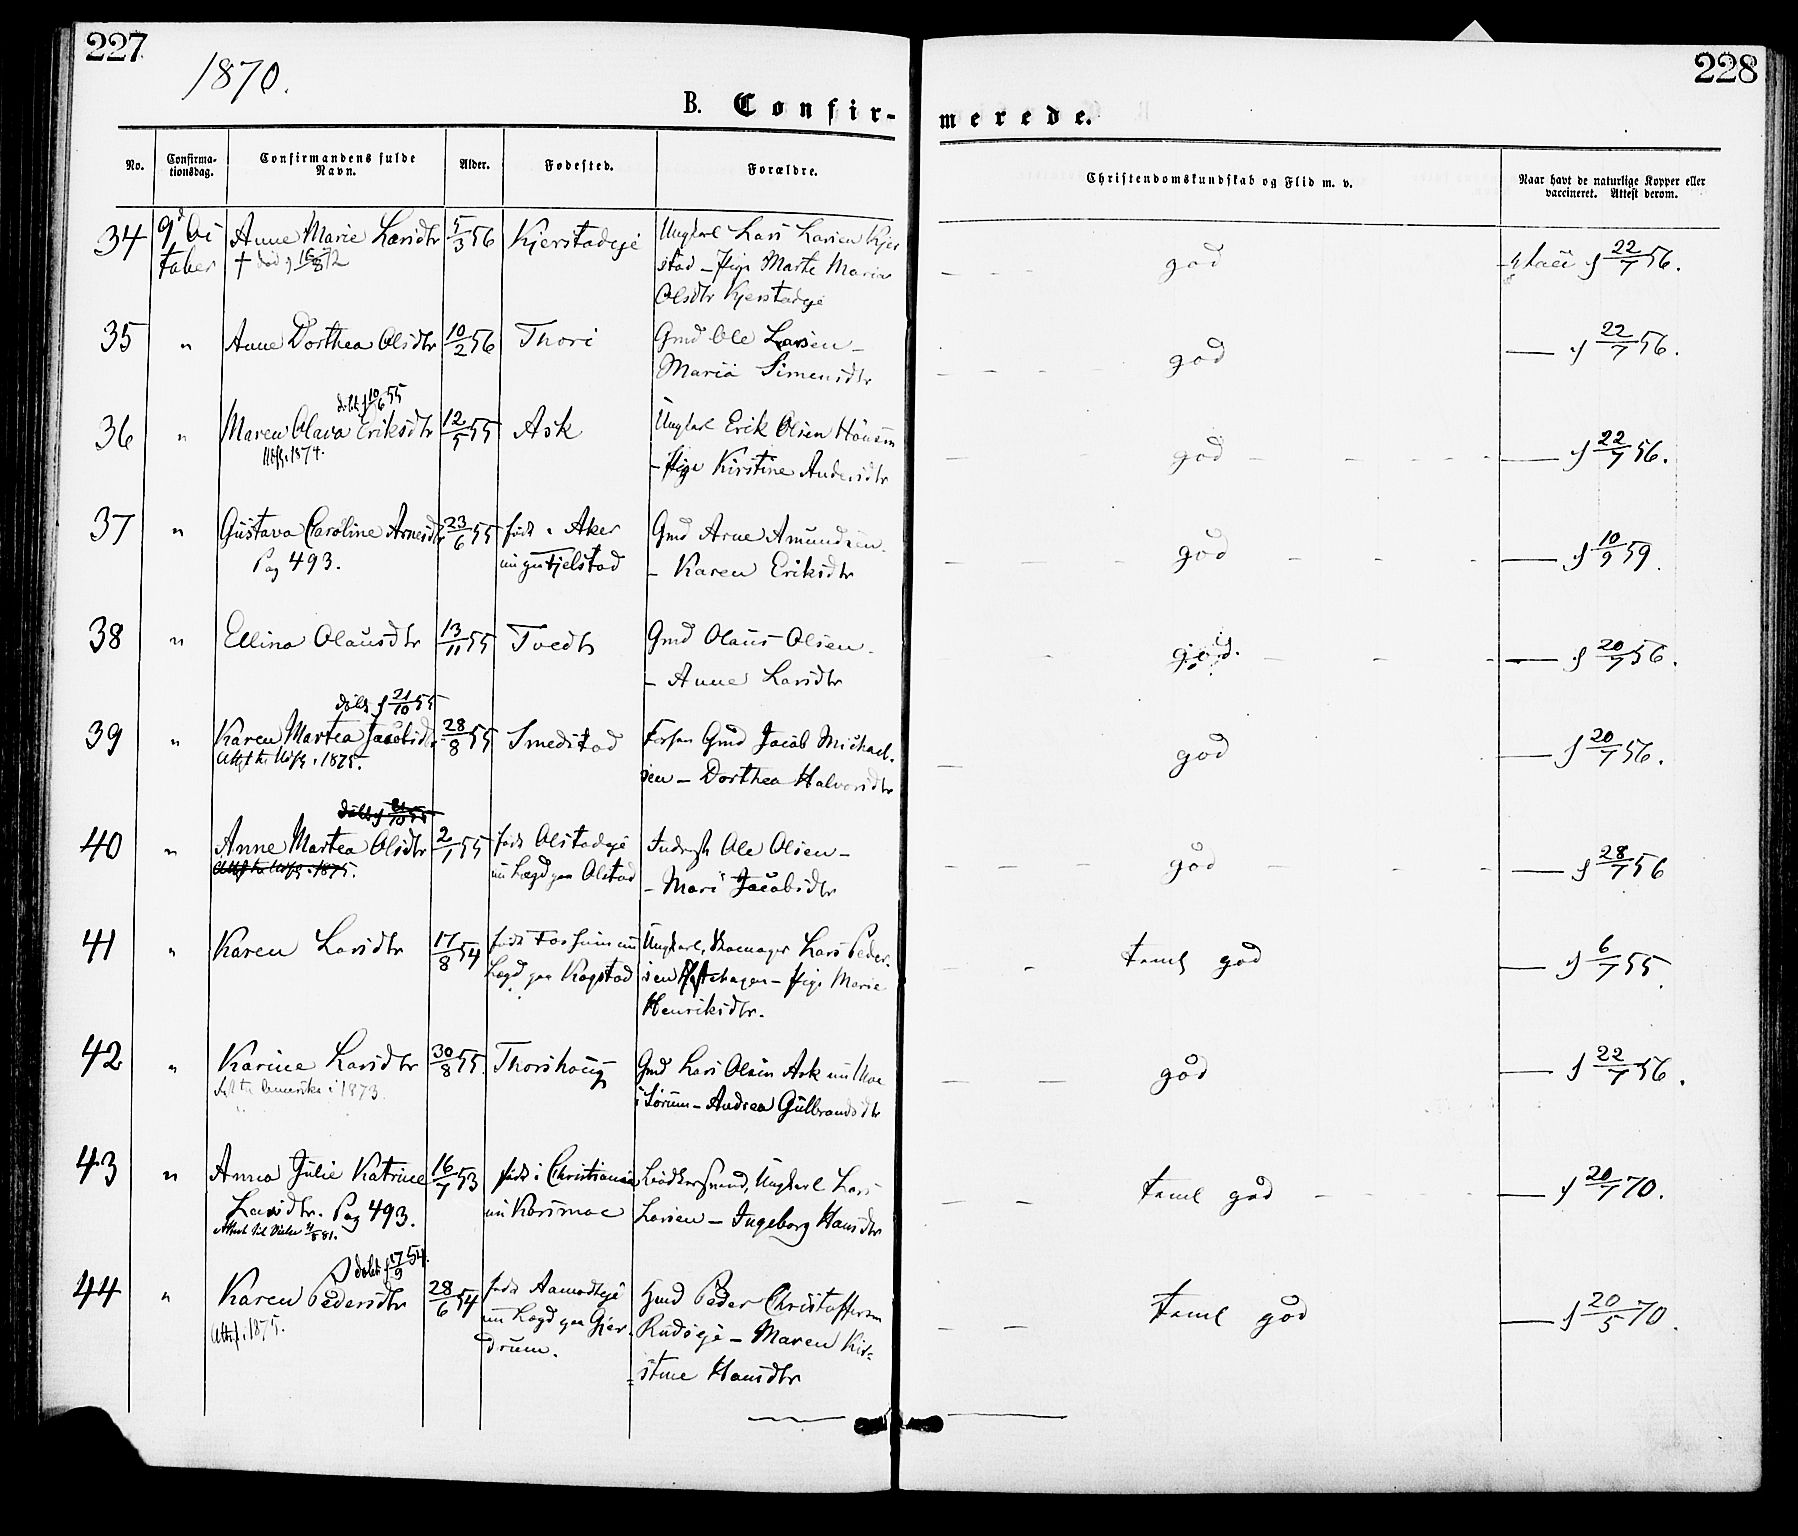 227
228
1870.
B. Confir-
merede.
No.
Confirma-
tionsdag.
Confirmandens fulde
Navn.
Alder.
Fødested.
Forældre.
Christendomskundskab og Flid m. v.
Naar havt de naturlige Kopper eller
vaccineret. Attest derom.
34 9d Oc Anne Marie Larsdtr 5/3 56 Kjerstadeje Ungkarl Lars Larsen Kjer
tober † død 16/8 72 stad – Pige Marte Maria
Olsdtr Kjerstadeje
god
22/7 56.
35 " Anne Dorthea Olsdtr 10/2 56 Thori Gmd Ole Larsen –
Maria Simensdtr
god
— f 22/7 56.
døbt f 10/6 55
36 " Maren Olava Eriksdtr 12/5 55 Ask Ungkarl Erik Olsen
1874. – Pige Kirstine Andersdtr
god
— f 22/7 56.
37 " Gustava Caroline Arnesdtr 23/6 55 født i Aker Gmd Arne Amundsen
Pag 493. Fjelstad – Karen Eriksdtr
god
— f 10/9 59.
38 " Ellina Olausdtr 13/11 55 Tvedt Gmd Olaus Olsen
– Anne Larsdtr
god.
— f 20/7 56.
døbt f 21/10 55
39 " Karen Martea Jacobsdtr 28/8 55 Smedstad Gmd Jacob Michael-
1875. sen – Dorthea Halvorsdtr
god
— f 20/7 56.
40 " Anne Martea Olsdtr 2/1 55 født Olstadeje Inderst Ole Olsen –
1875. nu Lægd paa Olstad – Mari Jacobsdtr
god
— f 28/7 56
41 " Karen Larsdtr 17/8 54 født Fossum nu Ungkarl, Skomager Lars Peder-
Lægd paa Kogstad sen – Pige Marie
Henriksdtr.
teml god
— f 6/7 55.
42 " Karine Larsdtr 30/8 55 Thorshaug Gmd Lars Olsen Ask nu Moe
til Amerika i 1873. i Sørum – Andrea Gulbrandsdtr
god
— f 22/7 56.
43 " Anna Julie Katrine 16/7 53 født i Christiania Ungkarl Lars
Larsdtr. Pag 493. nu Larsen – Ingeborg Hansdtr
81.
teml god
— f 20/7 70.
døbt f 17/9 54.
44 " Karen Pedersdtr 28/6 54 født Aamodteje Gmd Peder Christoffersen
1875. nu Lægd paa Gjer- Rudseje – Maren Kir-
drum. stine Hansdtr
teml god
— f 20/5 70.